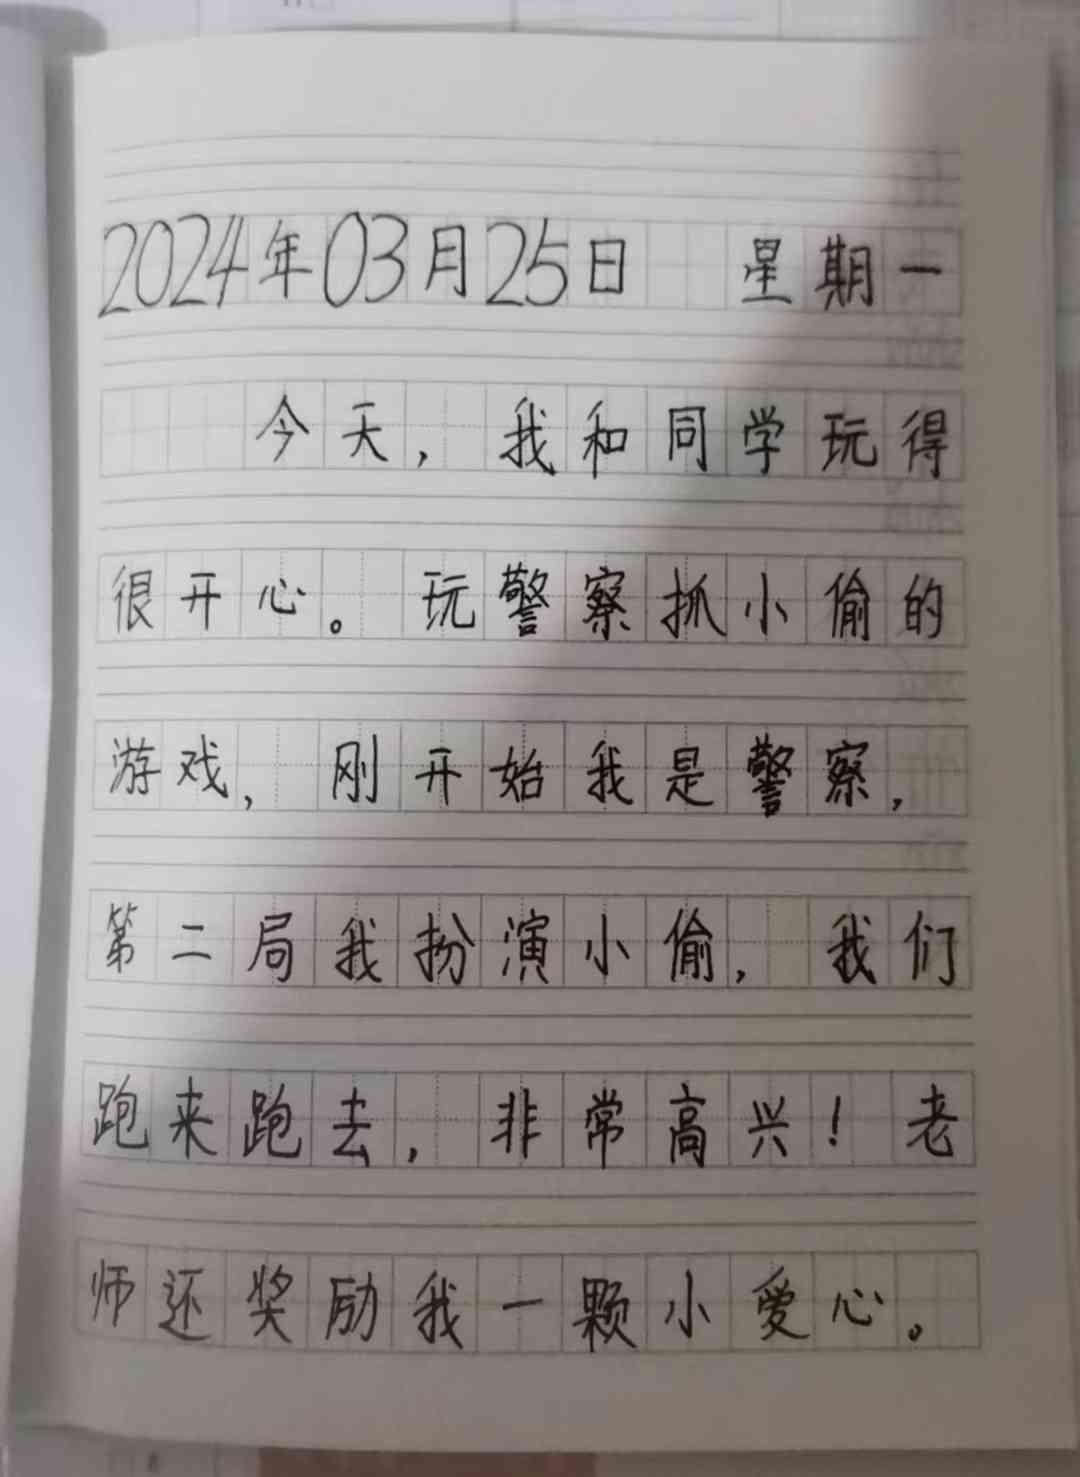 2024年03月25日 星期一
今天，我和同学玩得
很开心。玩警察抓小偷的
游戏，刚开始我是警察，
第二局我扮演小偷，我们
跑来跑去，非常高兴！老
师还奖励我一颗小爱心。